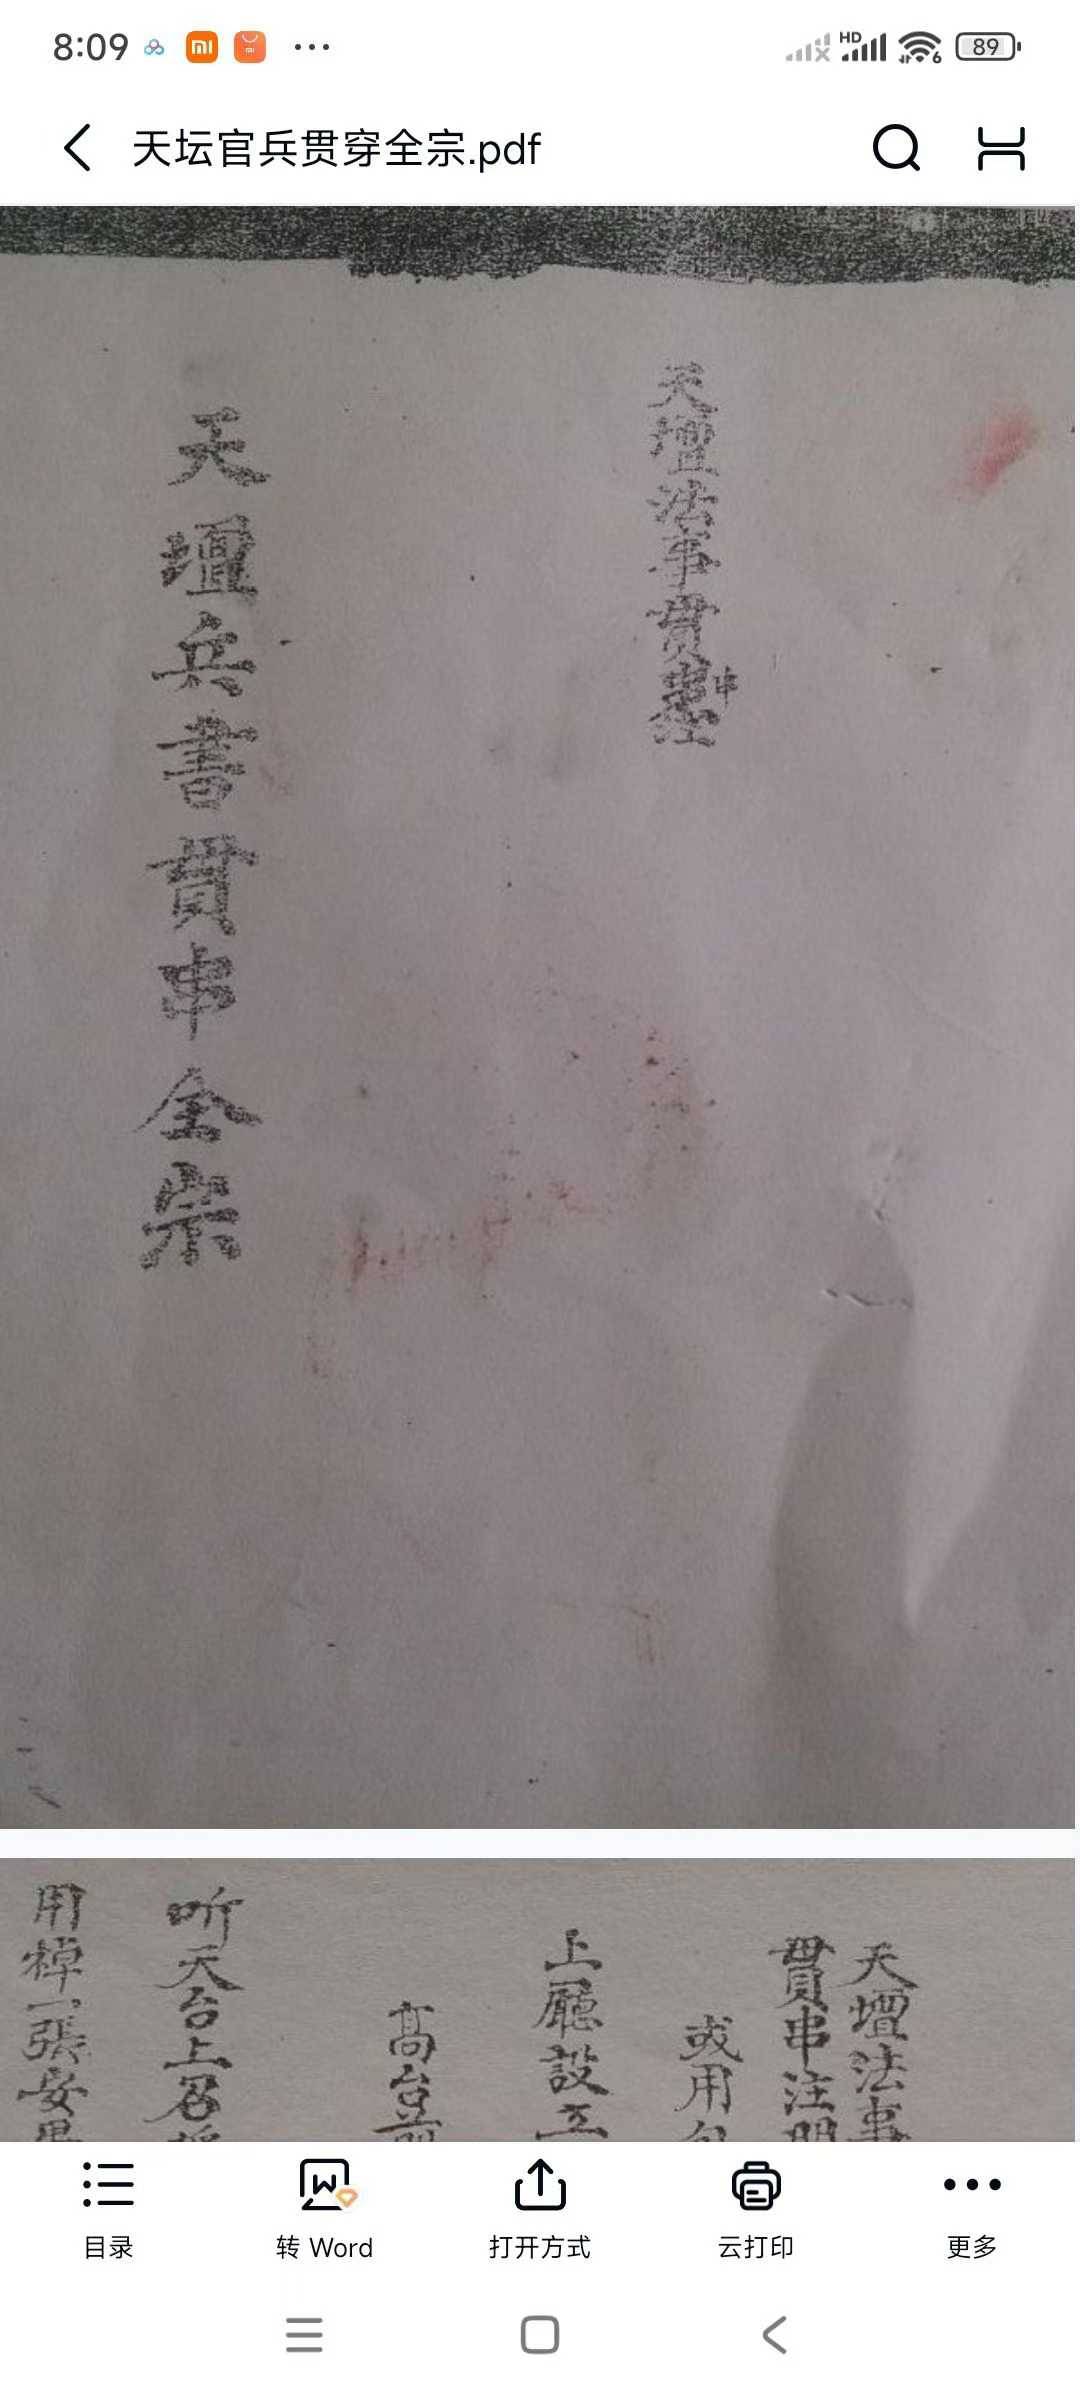 8:09
HD
6
89
天坛官兵贯穿全宗.pdf
天壇法事貫串注
串
天壇兵書貫串全宗
天壇法事
貫串注明
或用
上廳設
高台前
听天台上召
用棹一張安
目录
转 Word
打开方式
云打印
更多